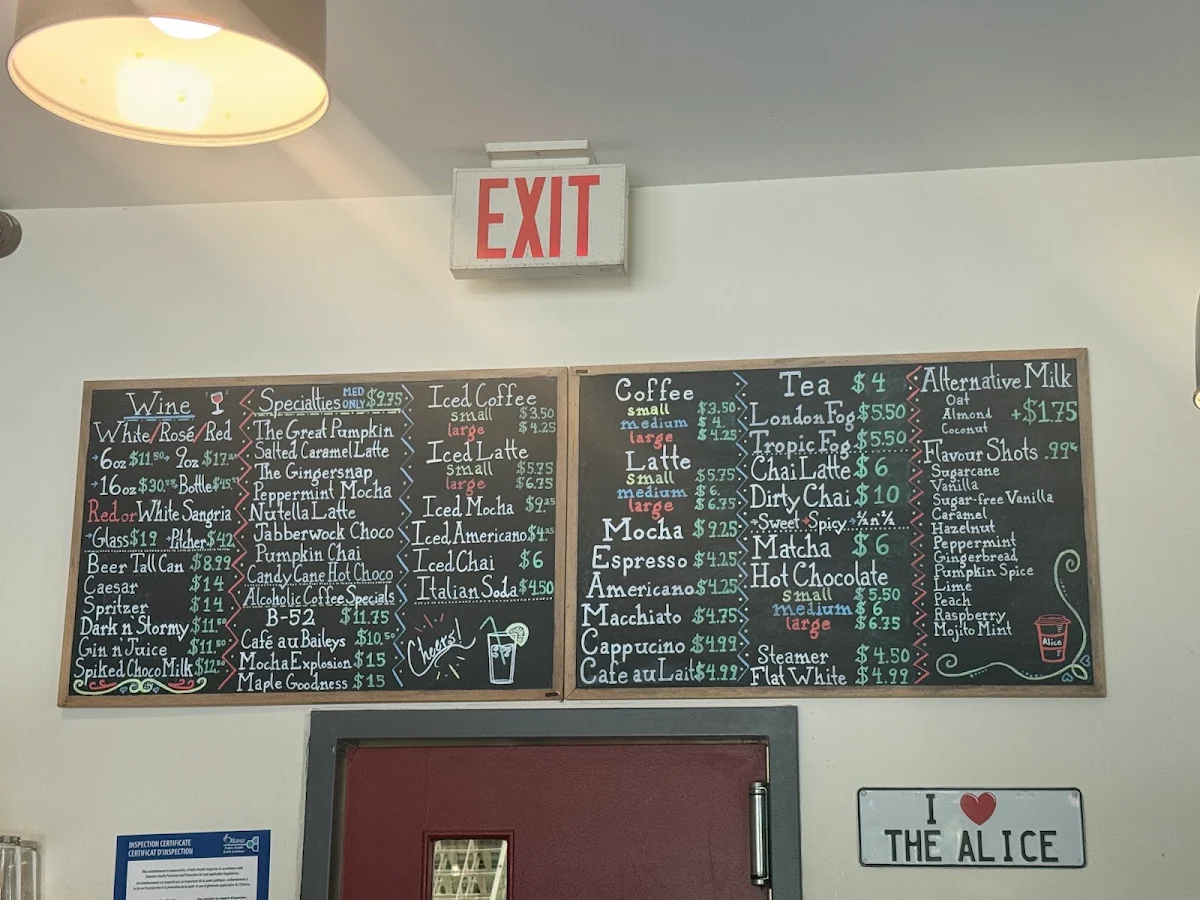 EXIT
Wine
White/Rosé/Red
6oz $11.50 9oz
16oz Bottle
Red or White Sangria
Glass $19 Pitcher $42
Beer Tall Can $8.99
Caesar $14
Spritzer $14
Dark n' Stormy $11.50
Gin n Juice $11.50
Spiked Choco Milk $12.50
Specialties MED ONLY $9.75
The Great Pumpkin
Salted Caramel Latte
The Gingersnap
Peppermint Mocha
Nutella Latte
Jabberwock Choco
Pumpkin Chai
Candy Cane Hot Choco
Alcoholic Coffee Specials
B-52 $11.75
Café au Baileys $10.50
Mocha Explosion $15
Maple Goodness $15
Iced Coffee
small $3.50
large $4.25
Iced Latte
small $5.75
large $6.75
Iced Mocha $9.25
Iced Americano
Iced Chai $6
Italian Soda $4.50
Cheers!
Coffee
small $3.50
medium $4
large $4.25
Latte
small $5.75
medium $6.
large $6.75
Mocha $9.25
Espresso $4.25
Americano $4.25
Macchiato $4.75
Cappucino $4.99
Cafe au Lait $4.99
Tea $4
London Fog $5.50
Tropic Fog $5.50
Chai Latte $6
Dirty Chai $10
Sweet Spicy ½ n ½
Matcha $6
Hot Chocolate
small $5.50
medium $6
large $6.75
Steamer $4.50
Flat White $4.99
Alternative Milk
Oat
Almond +$1.75
Coconut
Flavour Shots .99¢
Sugarcane
Vanilla
Sugar-free Vanilla
Caramel
Hazelnut
Peppermint
Gingerbread
Pumpkin Spice
Lime
Peach
Raspberry
Mojito Mint
Alice
I ❤ THE ALICE
INSPECTION CERTIFICATE
CERTIFICAT D'INSPECTION
Ottawa